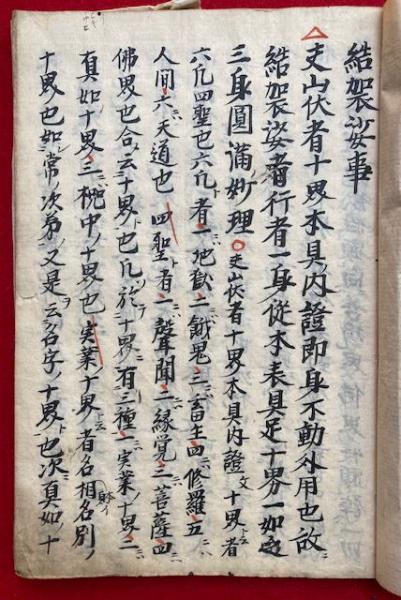 結袈裟事
夫山伏者十界本具ノ内證即身不動外用也故
結袈裟者行者一身從本表具足十界一如
三身圓滿妙理○夫山伏者十界本具内證文十界者
六凡四聖也六凡者一地獄二餓鬼三畜生四修羅五
人間六天道也四聖者一聲聞二緣覺三菩薩四
佛界也合云十界也凡於十界有三種一実業ノ十界二
真如ノ十界三祕中ノ十界也実業ノ十界者名相各別ノ
十界也如常ノ次第ノ又是云名字ノ十界也次真如ノ十